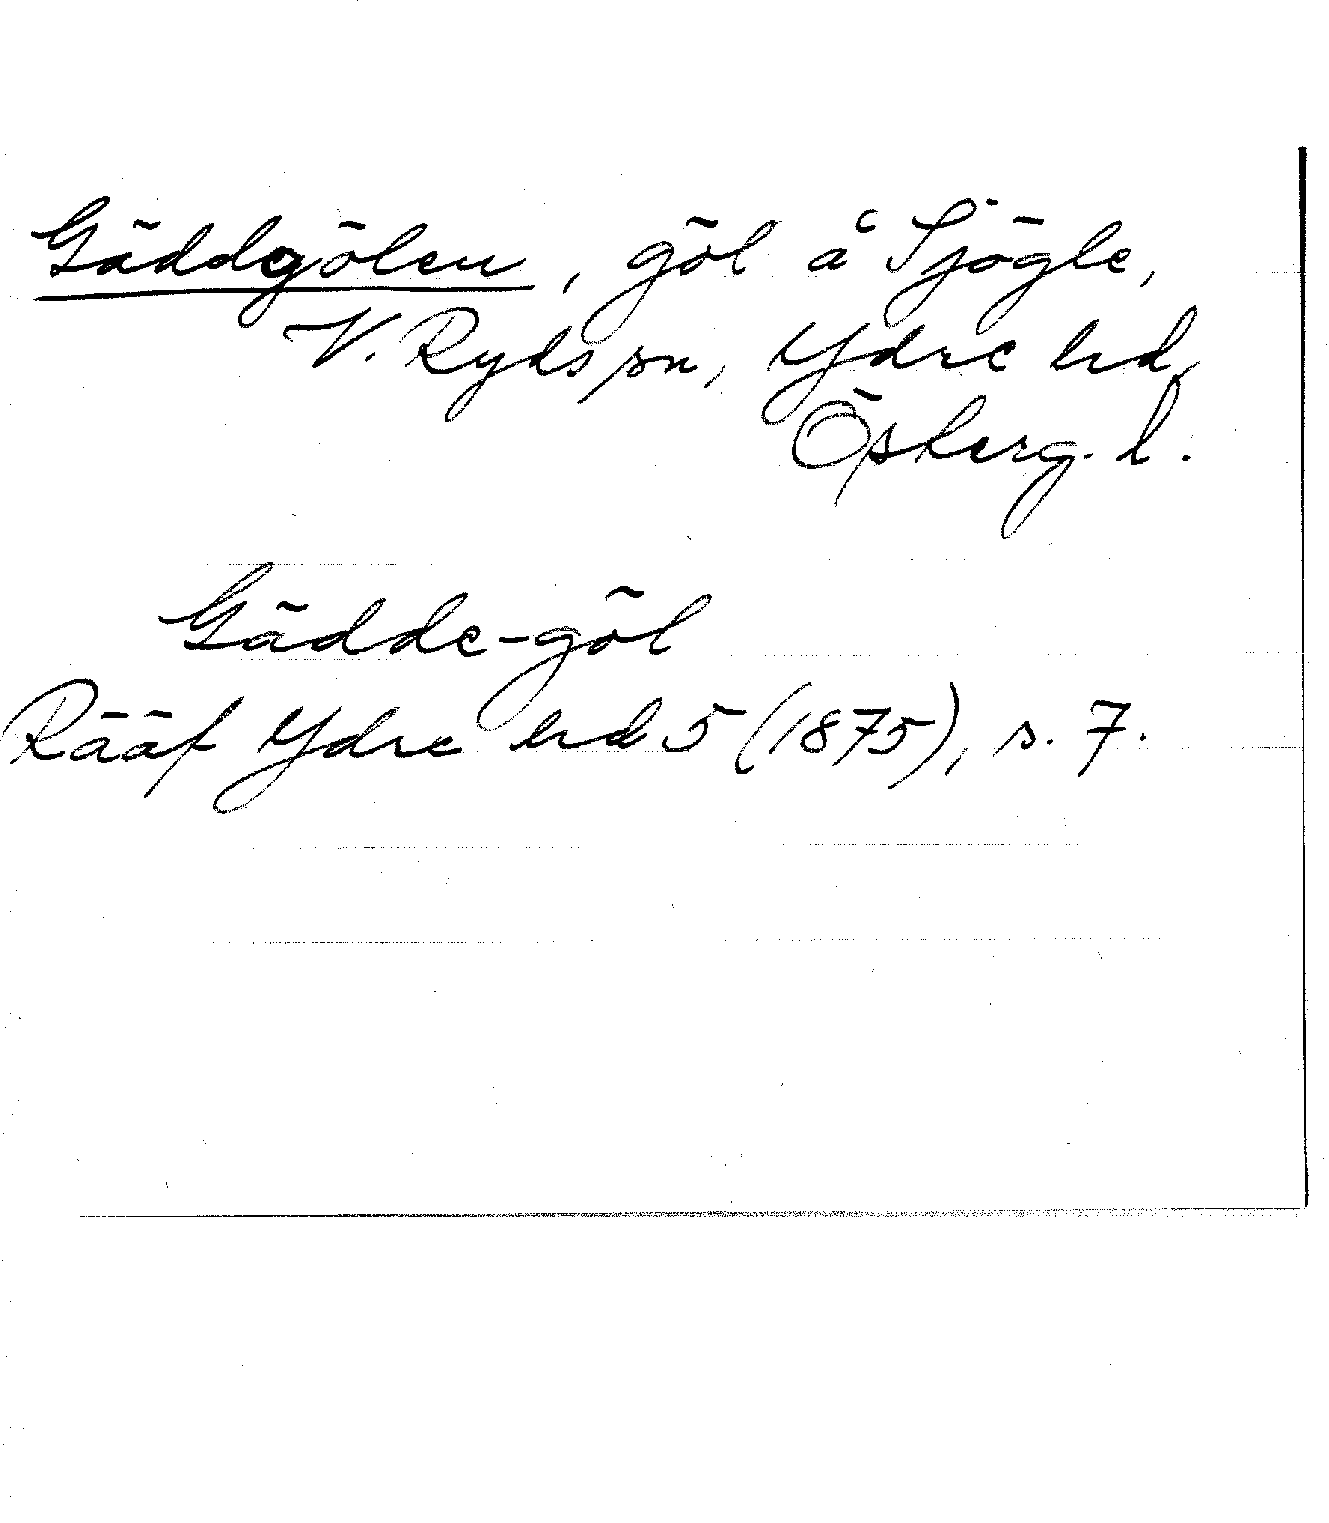 Gäddgölen, göl å Sjögle,
V. Ryds sn, Ydre hd,
Österg. l.
Gädde-göl
Rääf Ydre hd 5 (1875), s. 7.